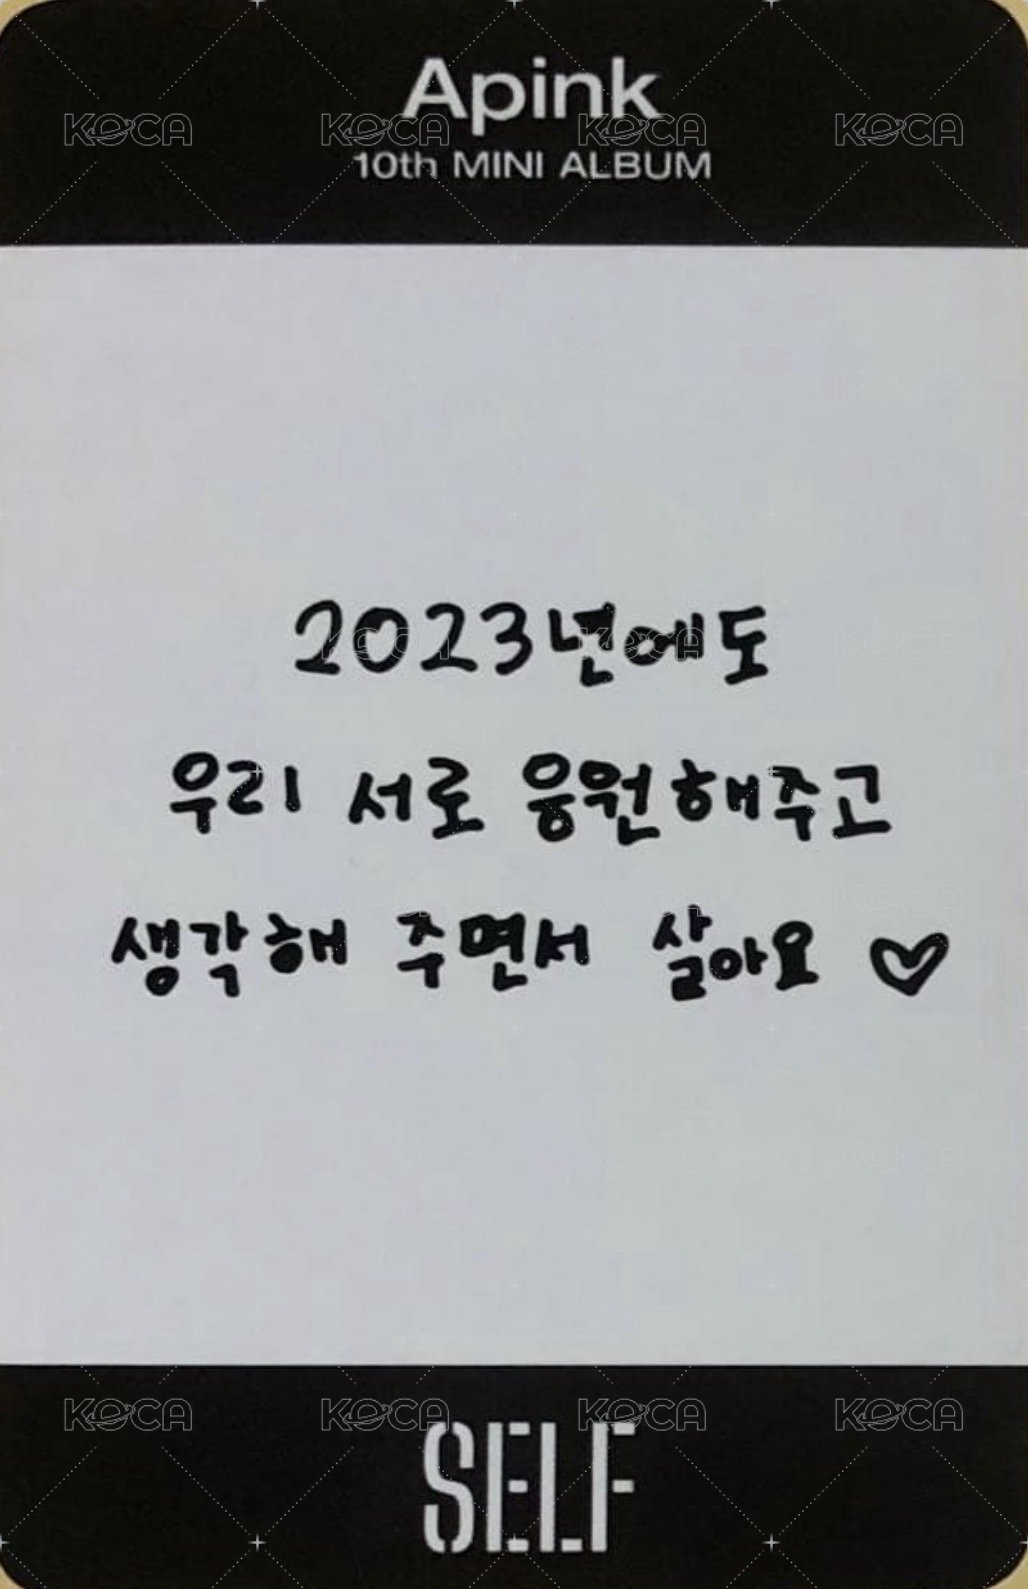 Apink
10th MINI ALBUM
2023년에도
우리 서로 응원해주고
생각해 주면서 살아요 ♡
SELF
KOCA KOCA KOCA KOCA